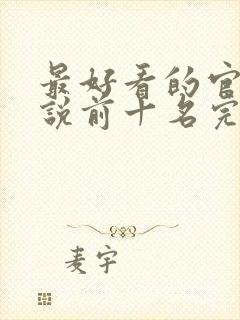 最好看的官
説前十名完
麦宇